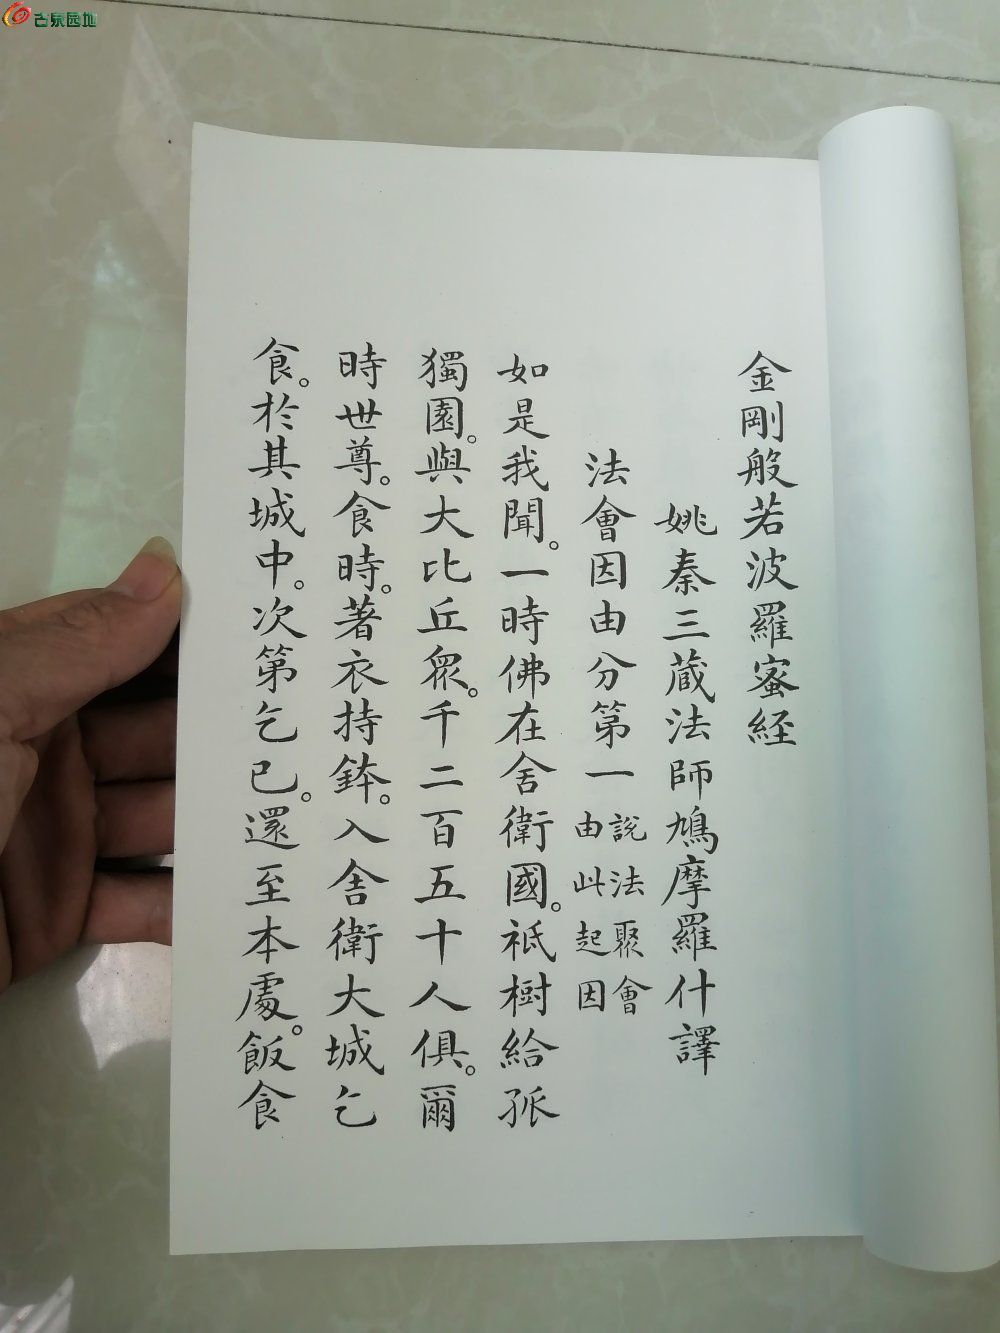 古泉园地
金剛般若波羅蜜経
姚秦三蔵法師鳩摩羅什譯
法會因由分第一
說法聚會
由此起因
如是我聞。一時佛在舍衛國。祇樹給孤
獨園。與大比丘眾。千二百五十人俱。爾
時世尊。食時。著衣持鉢。入舍衛大城乞
食。於其城中。次第乞已。還至本處。飯食